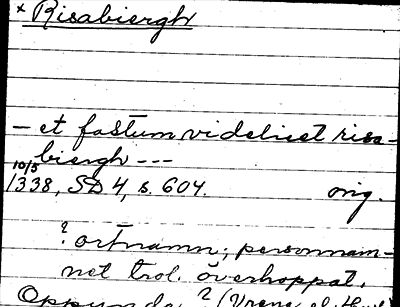 × Risabiergh
- et fastum videlicet risa-
biergh ---
10/5
1338, SD 4, s. 604. orig.
? ortnamn; personnam-
net trol. överhoppat.
Oppunda ? (Vrena el. Husb